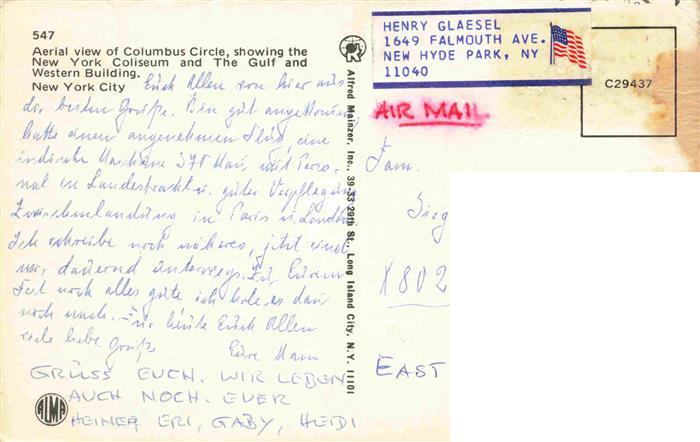 547
Aerial view of Columbus Circle, showing the
New York Coliseum and The Gulf and
Western Building.
New York City
Euch Allen von hier aus
die besten Grüße. Bin gut angekommen
hatte einen angenehmen Flug, eine
indische Maschine 370 Man, mit Perso-
nal in Landestracht u. guter Verpflegung
Zwischenlandung in Paris u. London
Ich schreibe noch näheres, jetzt sind
wir dauernd unterwegs. Zu Eurem
Fest noch alles gute ich hole es dan
noch nach. Für heute Euch Allen
viele liebe Grüße
Eure Mam
GRÜSS EUCH. WIR LEBEN
AUCH NOCH. EUER
HEINER ERI, GABY, HEIDI
ALMA
Alfred Mainzer, Inc., 39-33-29th St., Long Island City, N.Y. 11101
HENRY GLAESEL
1649 FALMOUTH AVE.
NEW HYDE PARK, NY
11040
C29437
AIR MAIL
Fam.
Sieg
X802
EAST